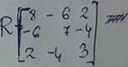 8 -6 2
R = -6 7 -4
2 -4 3